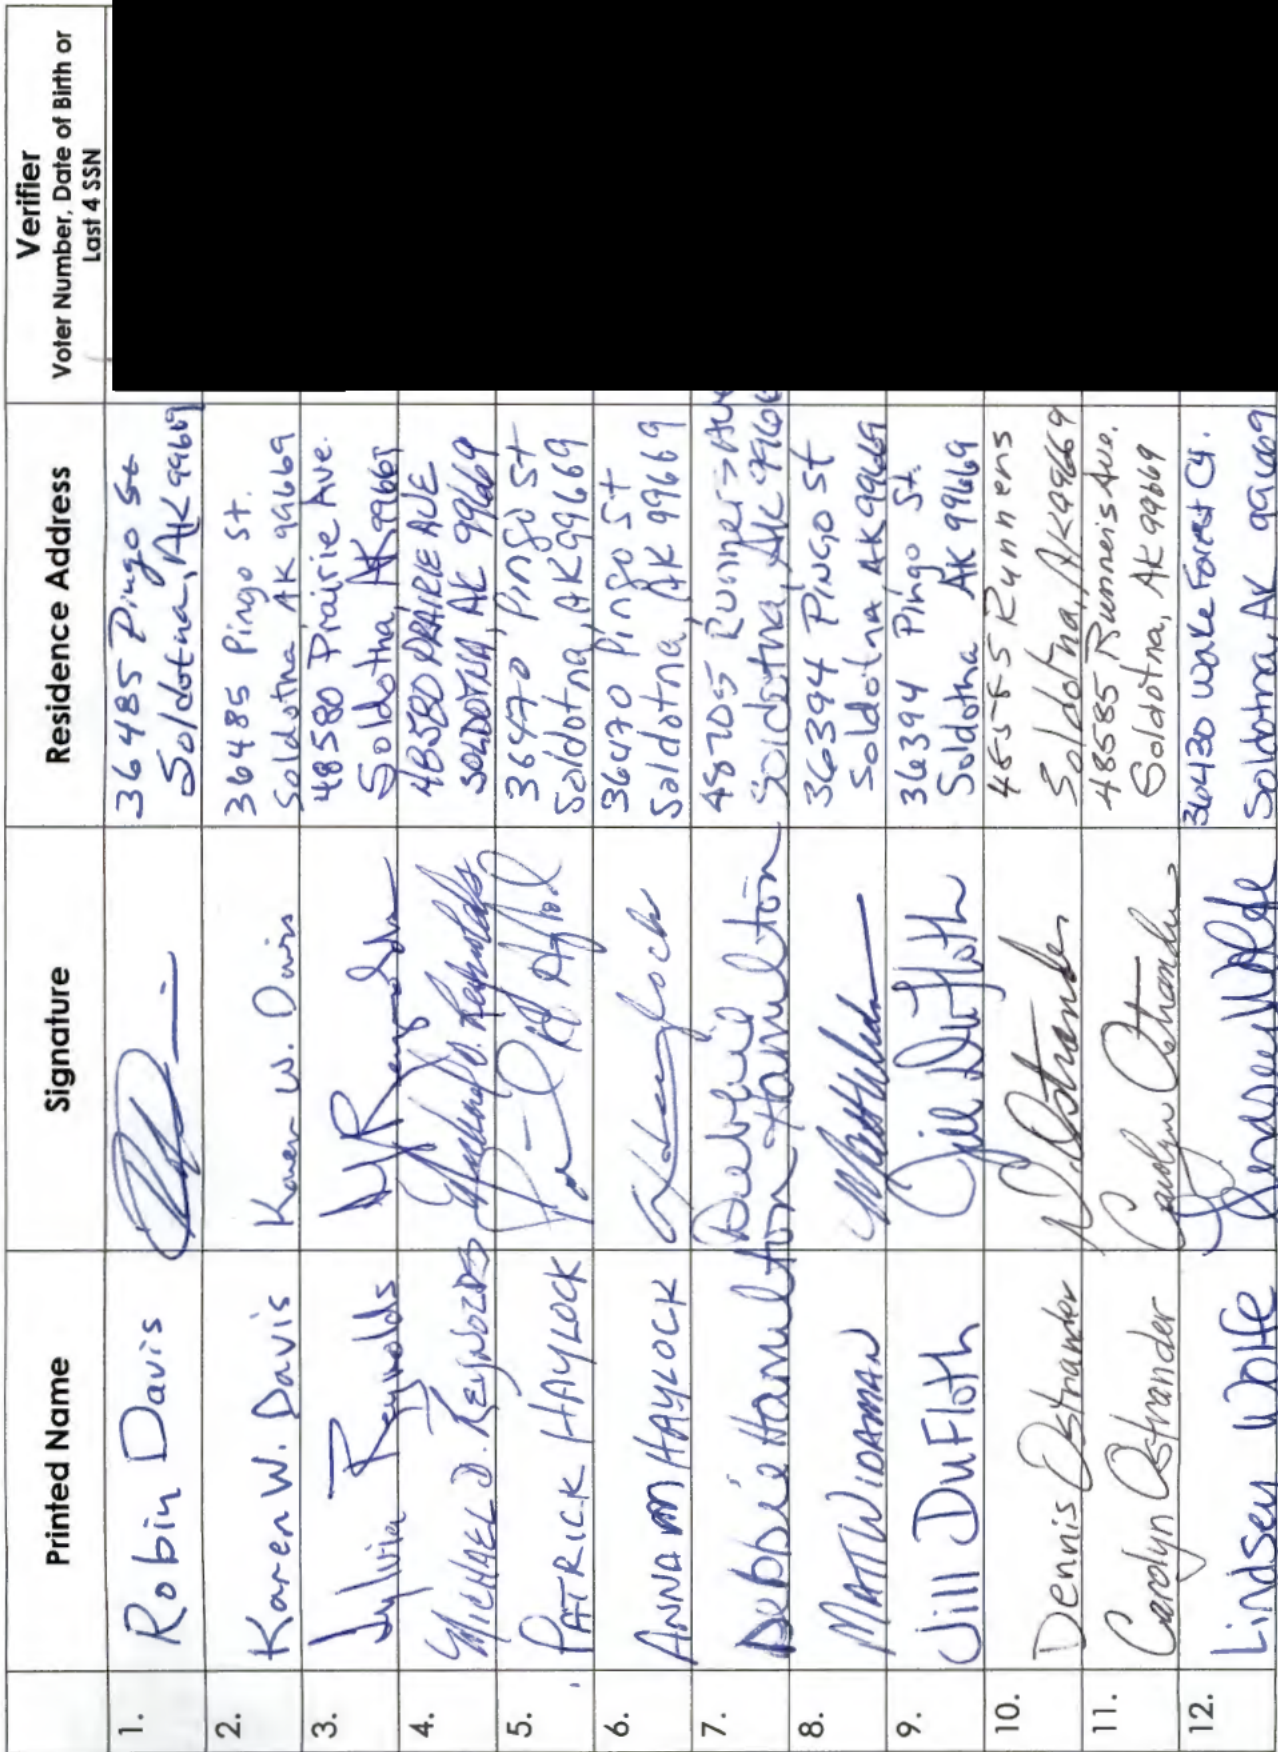 Printed Name
Signature
Residence Address
Verifier
Voter Number, Date of Birth or
Last 4 SSN
1.
Robin Davis
36485 Pingo St
Soldotna, AK 99669
2.
Karen W. Davis
Karen W. Davis
36485 Pingo St.
Soldotna AK 99669
3.
Sylvia Reynolds
48580 Prairie Ave.
Soldotna, AK 99669
4.
MICHAEL D. REYNOLDS
Michael D. Reynolds
48580 PRAIRIE AVE
SOLDOTNA, AK 99669
5.
PATRICK HAYLOCK
36470 Pingo St
Soldotna, AK 99669
6.
ANNA M HAYLOCK
36470 Pingo St
Soldotna, AK 99669
7.
Debbie Hamilton
Debbie
Hamilton
48705 Runners Ave
Soldotna, AK 9966
8.
MATT WIDAMAN
36394 PINGO St
Soldotna AK 99669
9.
Jill DuFloth
Jill DuFloth
36394 Pingo St.
Soldotna AK 99669
10.
Dennis Ostrander
D. Ostrander
48585 Runners
Soldotna, AK 99669
11.
Carolyn Ostrander
Carolyn Ostrander
48585 Runners Ave.
Soldotna, AK 99669
12.
Lindsey Wolfe
Lindsey Wolfe
36430 Wake Forest Ct.
Soldotna, AK 99669